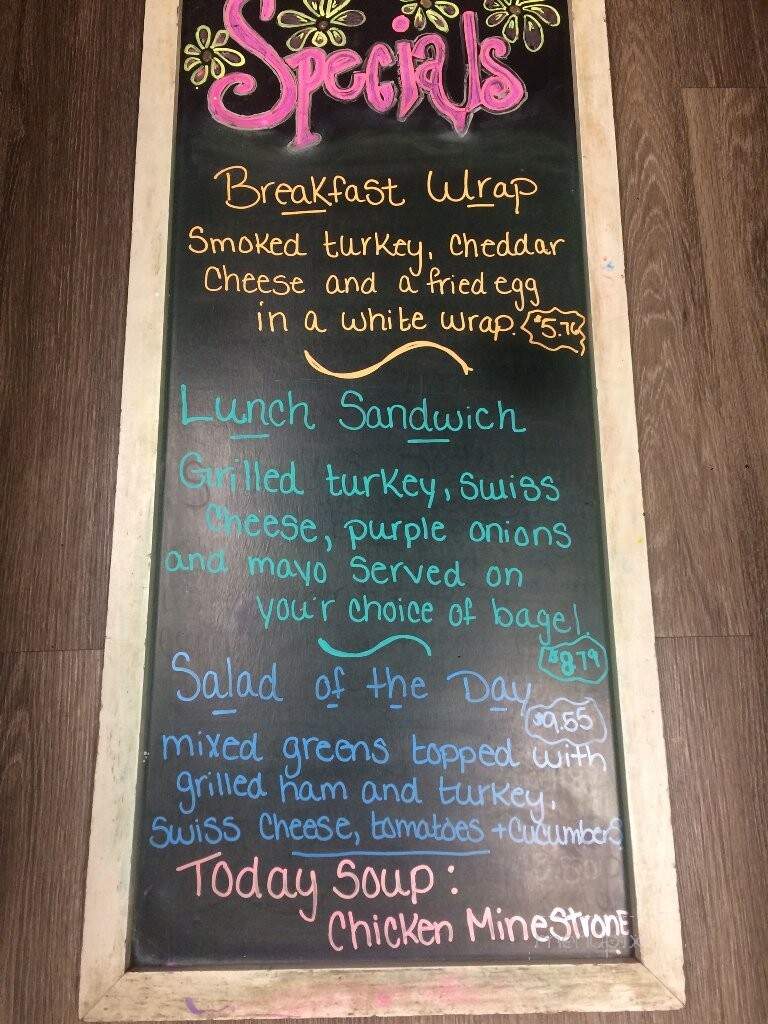 Specials
Breakfast Wrap
Smoked turkey, cheddar
Cheese and a fried egg
in a white wrap. $5.76
Lunch Sandwich
Grilled turkey, Swiss
Cheese, purple onions
and mayo Served on
you'r choice of bagel
$8.79
Salad of the Day
$9.55
mixed greens topped with
grilled ham and turkey,
Swiss Cheese, tomatoes + Cucumbers
Today Soup:
Chicken Minestrone